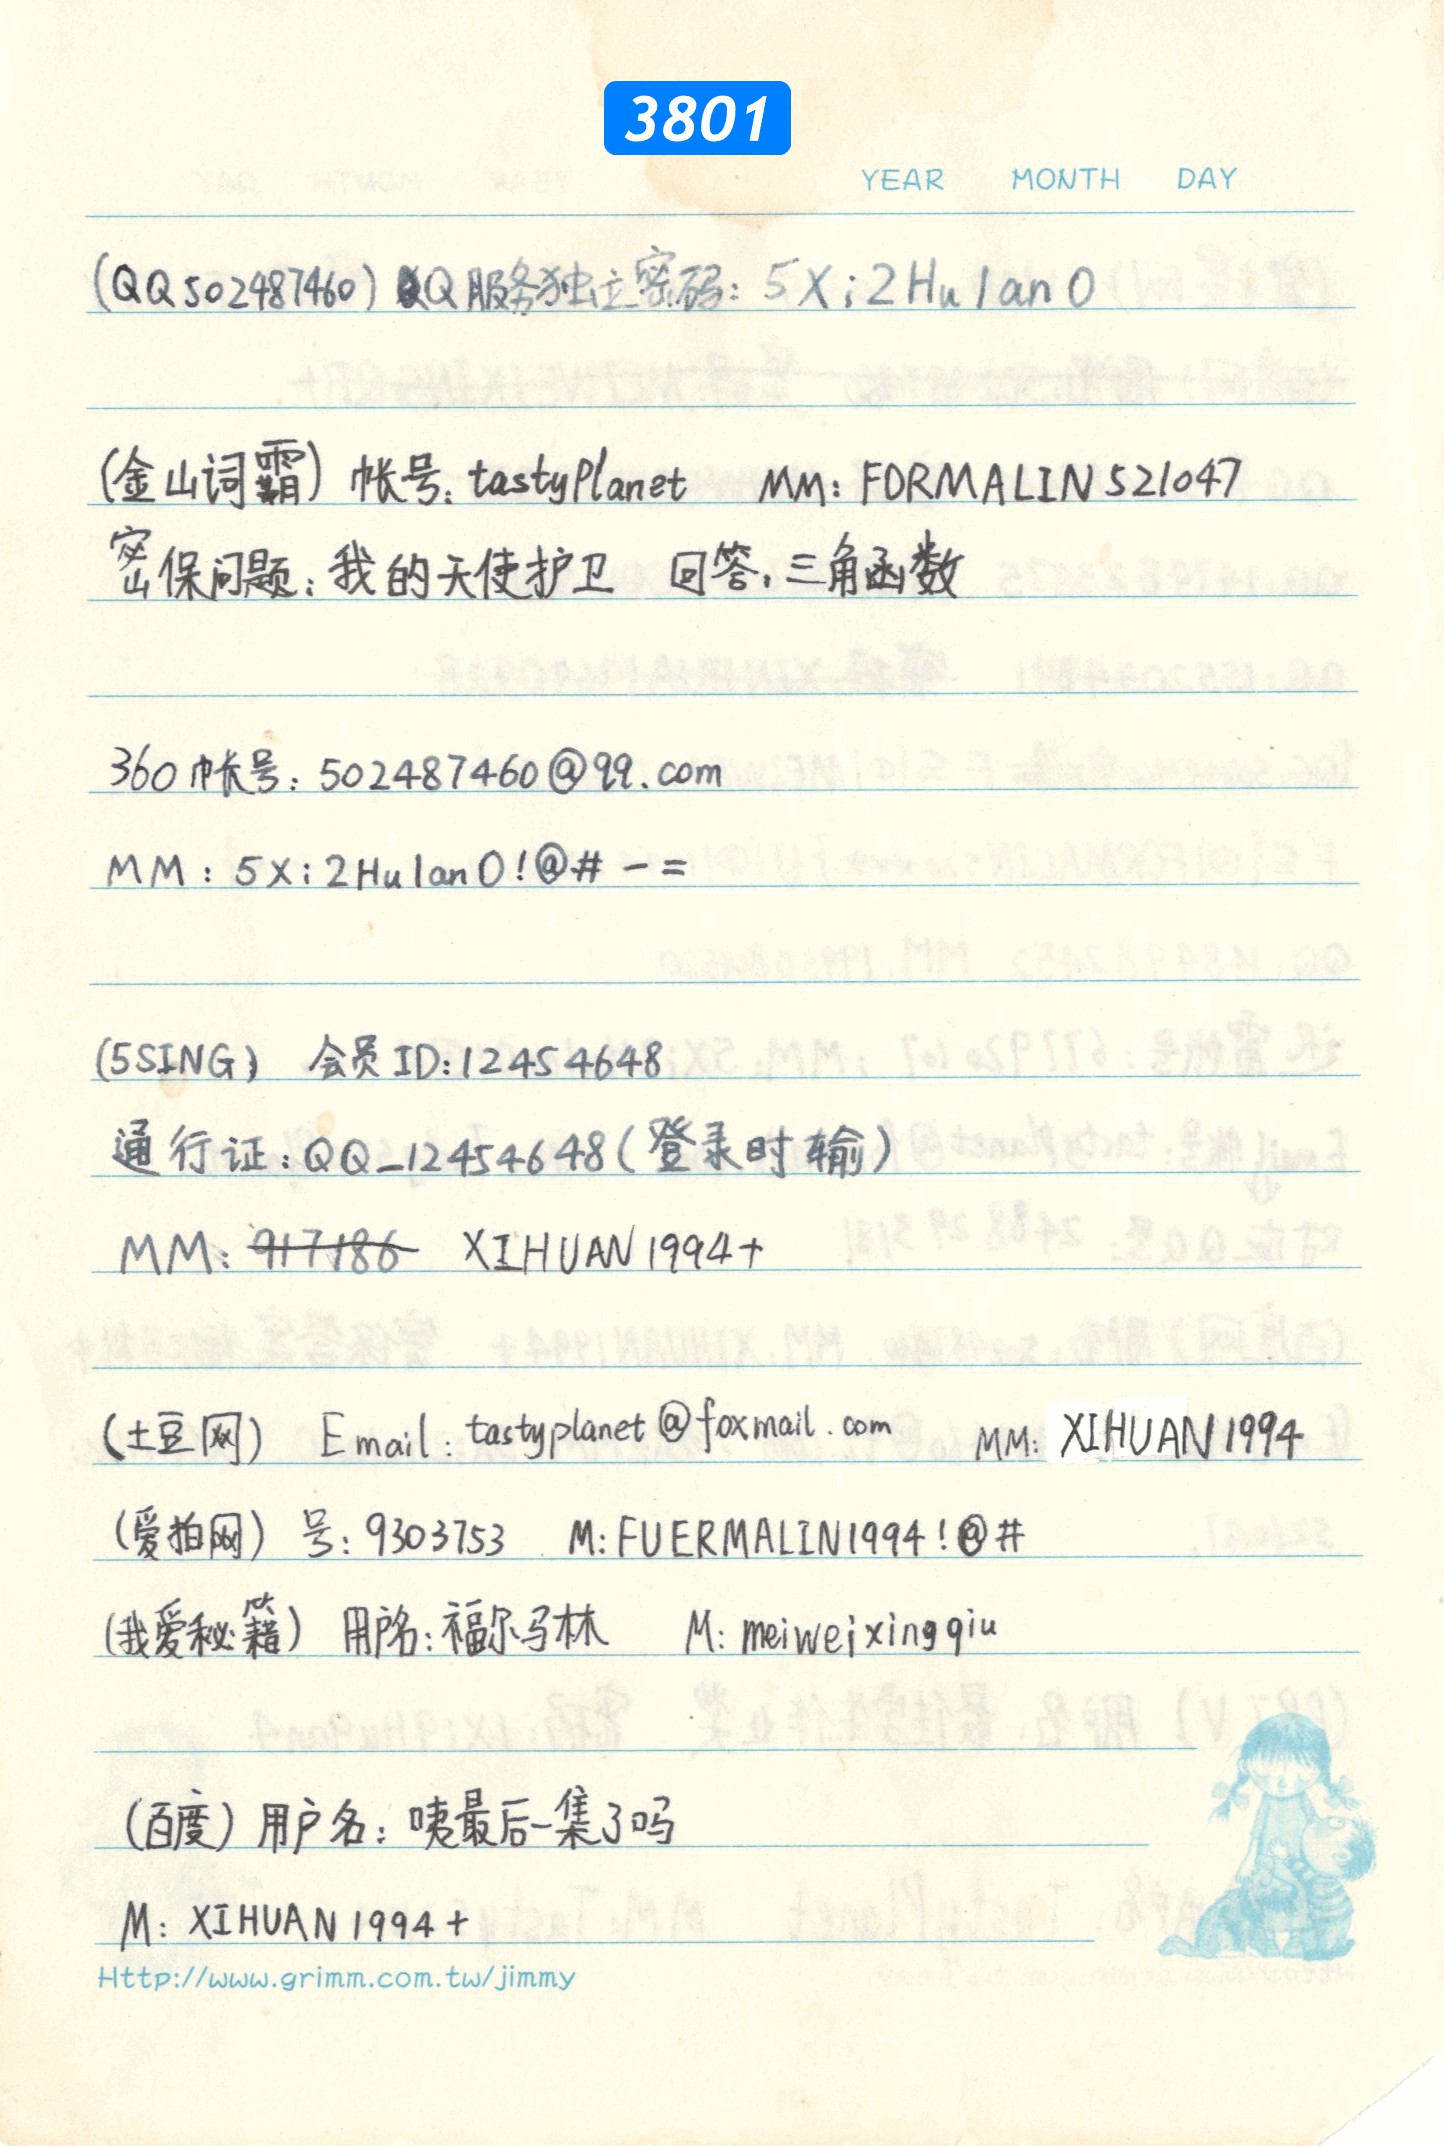 3801
YEAR MONTH DAY
(QQ502487460) QQ服务独立密码: 5Xi2Hulan0
(金山词霸) 帐号: tastyPlanet MM: FORMALIN521047
密保问题: 我的天使护卫 回答: 三角函数
360帐号: 502487460@qq.com
MM: 5Xi2Hulan0!@#-=
(5SING) 会员ID:12454648
通行证: QQ_12454648(登录时输)
MM: 917186 XIHUAN1994+
(土豆网) Email: tastyplanet@foxmail.com MM: XIHUAN1994
(爱拍网) 号: 9303753 M: FUERMALIN1994!@#
(我爱秘籍) 用户名: 福尔马林 M: meiweixingqiu
(百度) 用户名: 咦最后一集了吗
M: XIHUAN1994+
Http://www.grimm.com.tw/jimmy